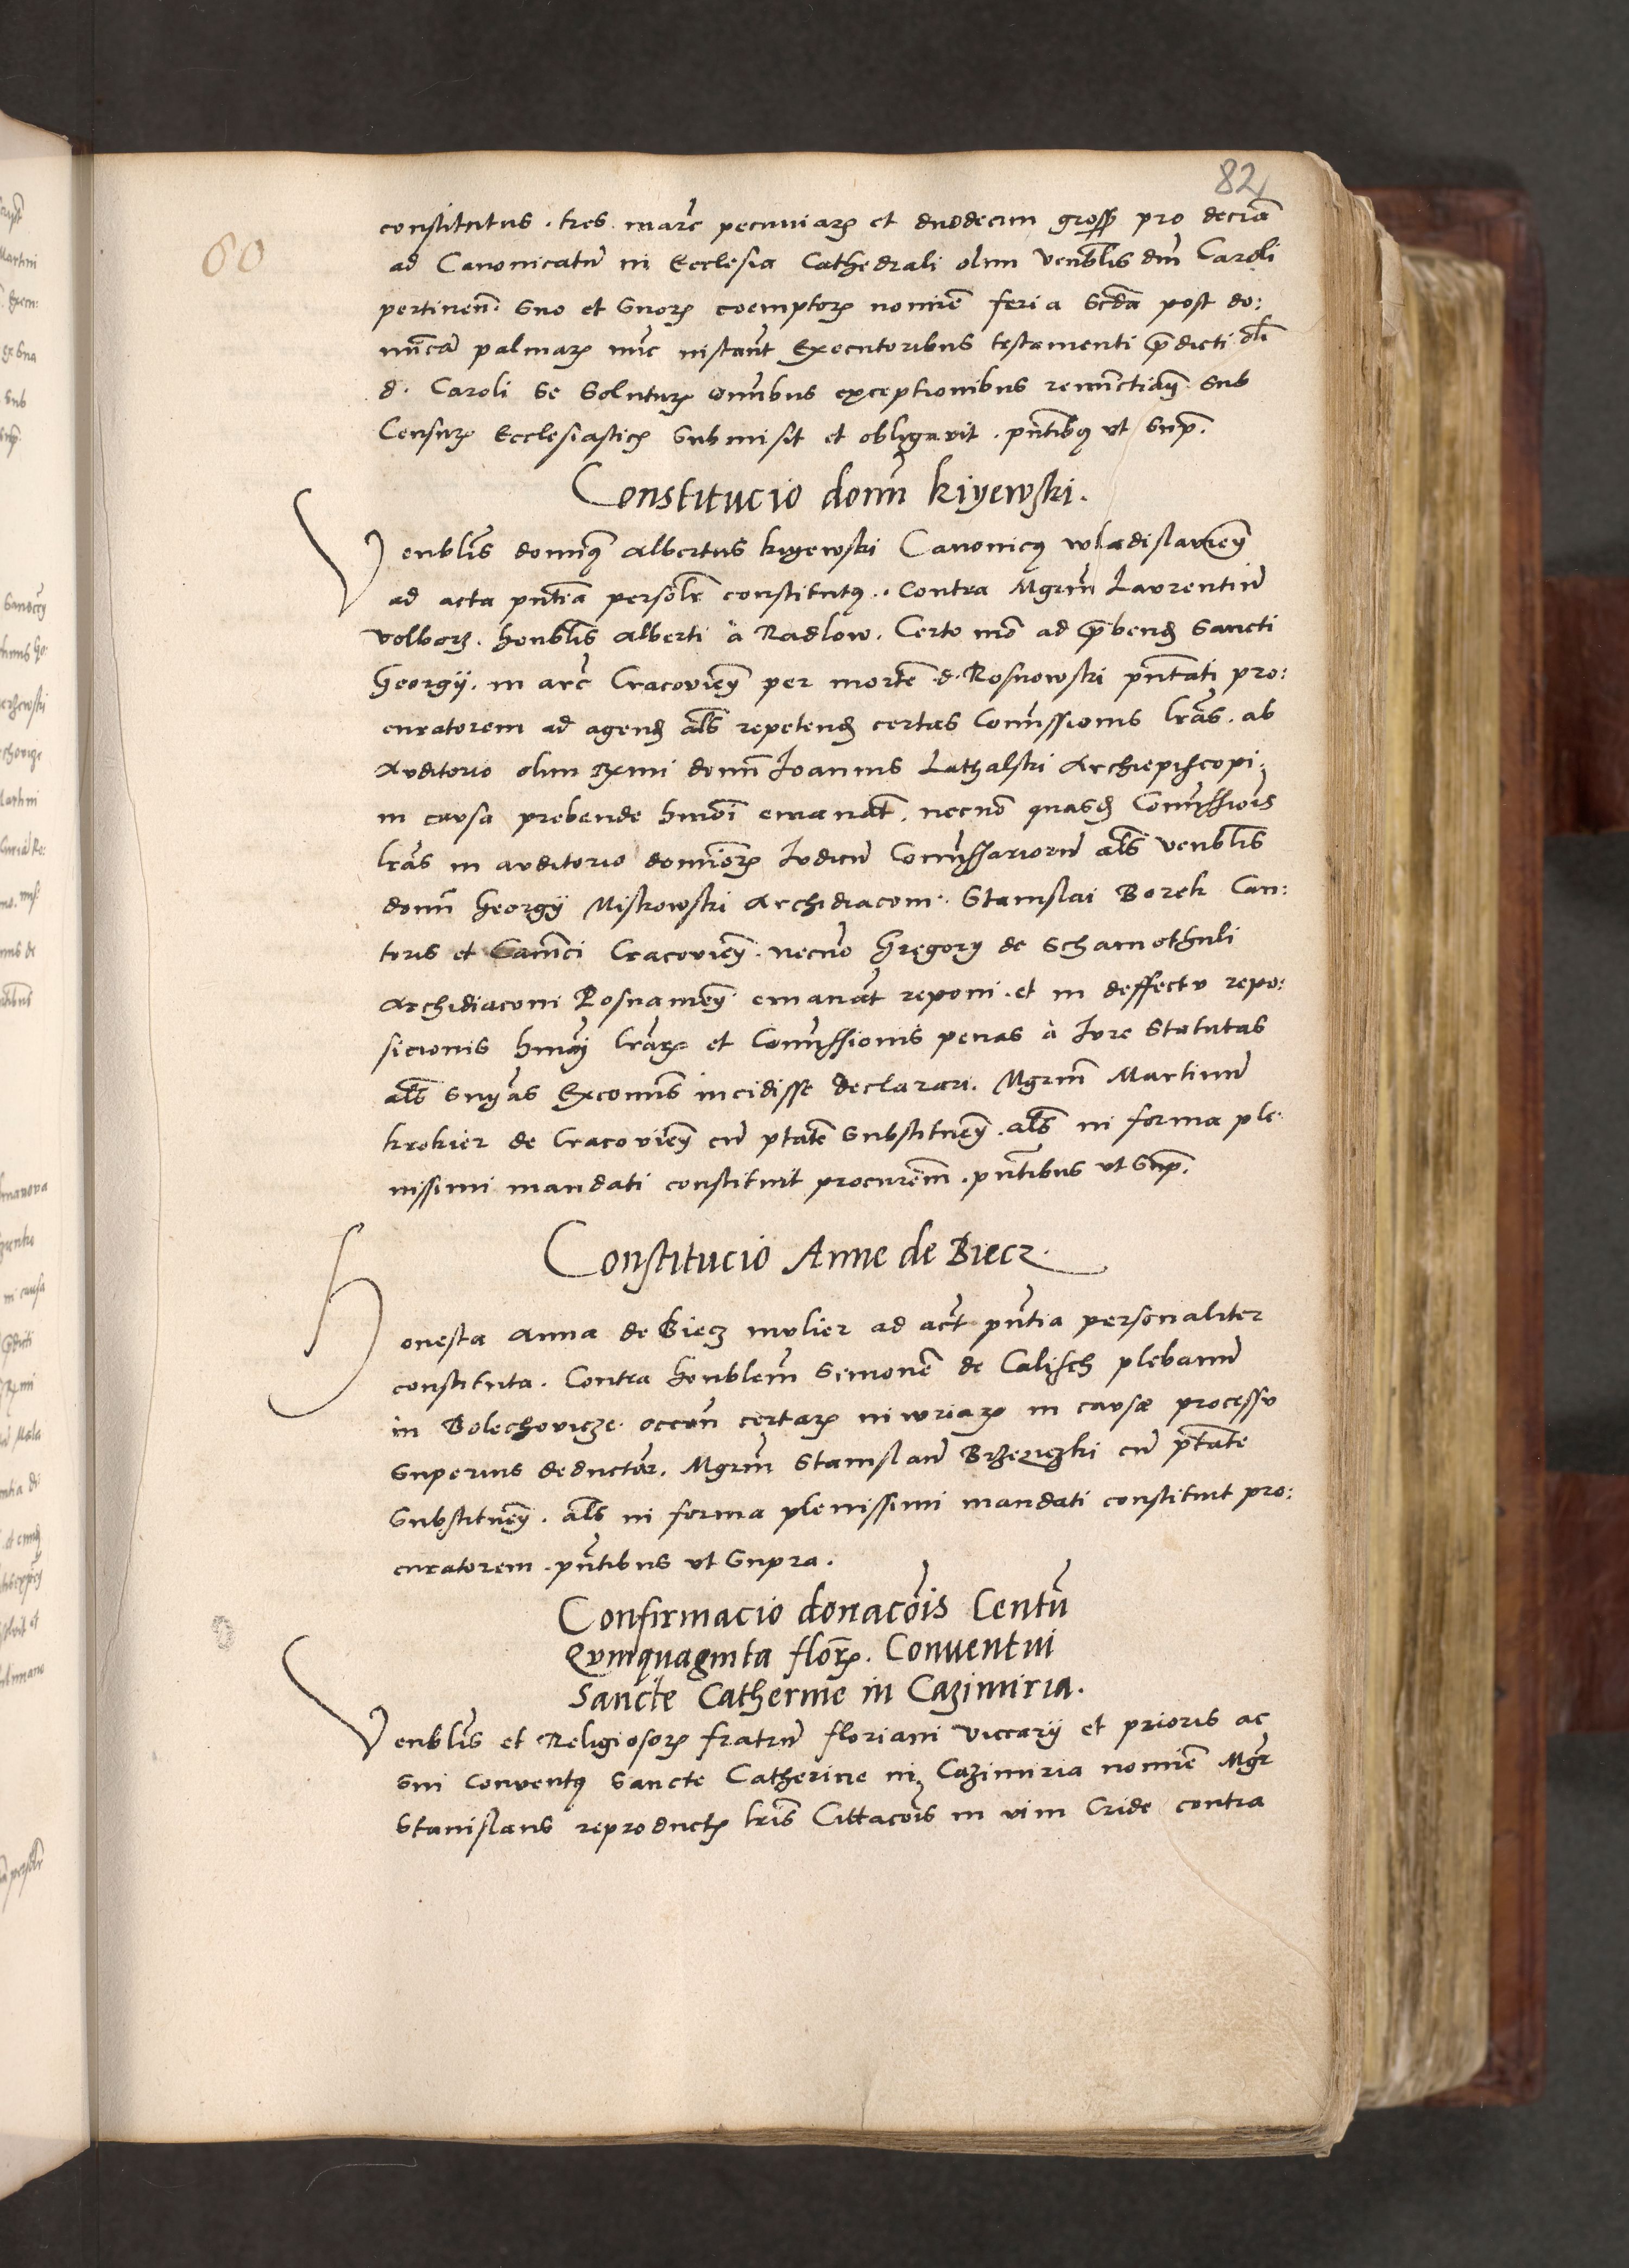 82
60
constitutus . tres marc̄ pecuniarꝫ et duodecim gross̄ pro decīa
ad Canonicatū in Ecclesia Cathedrali olim Venēblis dn̄i Caroli
pertinen̄. suo et suorꝫ coemptorꝫ nomiē feria scd̄a post do:
mīcā palmarꝫ nūc instan̄t Executoribus testamenti p̄dicti olī
d. Caroli se soluturꝫ oīnibus exceptionibus renūctian̄ sub
Censurꝫ Ecclesiasticꝫ submisit et obligavit . pn̄tibꝯ ut sup̄.
Constitucio domī kiyewski.
Venēblis domiꝯ Albertus kiyewski Canonicꝯ wladislavieñ
ad acta pn̄tia persolīr constitutꝯ . Contra Mgrm̄ Laurentiū
volborꝫ. honēblis Alberti à Radlow . Certo mō ad p̄bendꝫ sancti
Georgij . in arc̄ Cracovieñ per mortē d. Rosnowski pn̄tati pro:
curatorem ad agendꝫ als̄ repetendꝫ certas Comissionis lr̄as . ab
Auditorio olim Rx̄mi domī Joannis Lathalski Archiepiscopi
in causa prebende hmōi emanat̄. necnō quasdꝫ Comissiōis
lr̄as in auditorio domīorꝫ Iudicū Comissariorū als̄ venēblis
domī Georgij Miskowski Archidiaconi . Stanislai Borek Can:
toris et Canoīci Cracovieñ . necnō Gregorij de Schamothuli
Archidiaconi Posnanieñ emanat̄ reponi . et in deffectu repo:
sicionis hmōi lr̄arꝫ et Comissionis penas à Jure Statutas
als̄ snīas Excomīs incidisse declarari . Mgrm̄ Martinū
krokier de Cracovieñ cū ptatē substitueñ . als̄ in forma ple
nissimi mandati constituit procurēm . pn̄tibus ut sup̄.
Constitucio Anne de Biecz.
Honesta Anna de Biecz mulier ad act̄ pn̄tia personaliter
constituta . Contra honēblem Simonē de Calisch plebanū
in Bolechovicze . occōn certarꝫ iniuriarꝫ in causæ processu
superius deductarꝫ . Mgrm̄ Stanislaū Brzezyczki cū ptate
substitueñ . als̄ in forma plenissimi mandati constituit pro:
curatorem . pn̄tibus ut supra .
Confirmacio donacōis Centū
Qvinquaginta florꝫ. Conventui
Sancte Catherine in Cazimiria.
Venēblis et Religiosorꝫ fratrū floriani viccarij et prioris ac
sui Conventꝯ Sancte Catherine in Cazimiria nomiē Mgr̄
Stanislaus reproductꝫ lr̄is Cittacōis in vim Cride contra